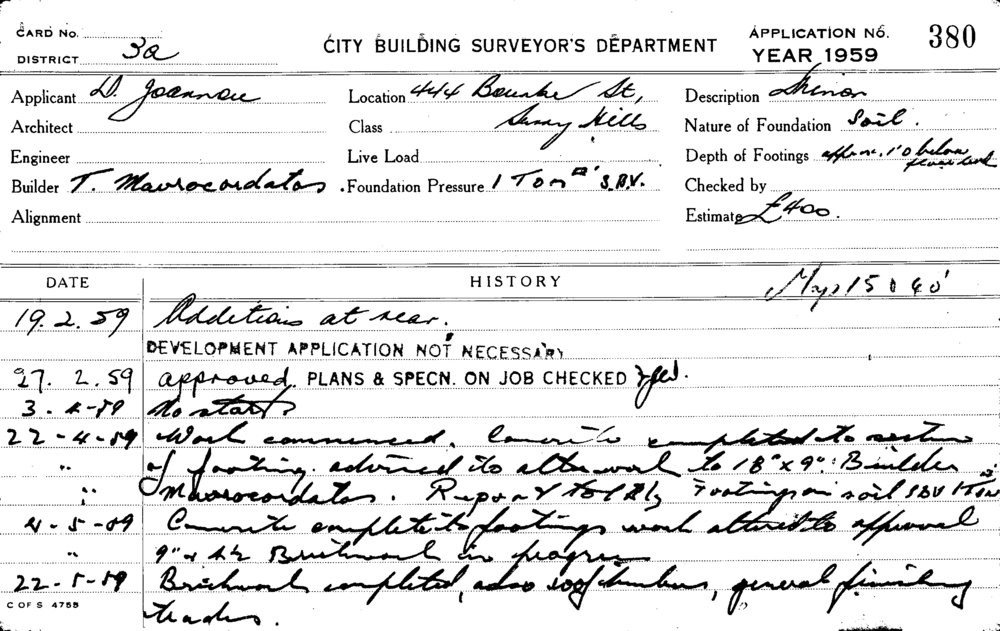 CARD No.
DISTRICT 3a
CITY BUILDING SURVEYOR'S DEPARTMENT
APPLICATION No. 380
YEAR 1959
Applicant D. Joannou
Location 444 Bourke St,
Description Minor
Architect
Class Surry Hills
Nature of Foundation Soil.
Engineer
Live Load
Depth of Footings approx. 1'0 below floor level
Builder T. Mavrocordatos.
Foundation Pressure 1 Ton S.B.V.
Checked by
Alignment
Estimate £400.
DATE
HISTORY
19.2.59 Additions at rear.
DEVELOPMENT APPLICATION NOT NECESSARY
27.2.59 approved. PLANS & SPECN. ON JOB CHECKED
3.4-59 No start
22-4-59 Work commenced. Concrete completed to section
" of footing. advised to alter work to 18" x 9". Builder
" Mavrocordatos. Footings on soil SBV 1 Ton
4-5-59 Concrete complete to footings work altered to approval
" 9" & 4½ Brickwork in progress
22-5-59 Brickwork completed, also roof timbers, general finishing
trades.
C OF S 4755